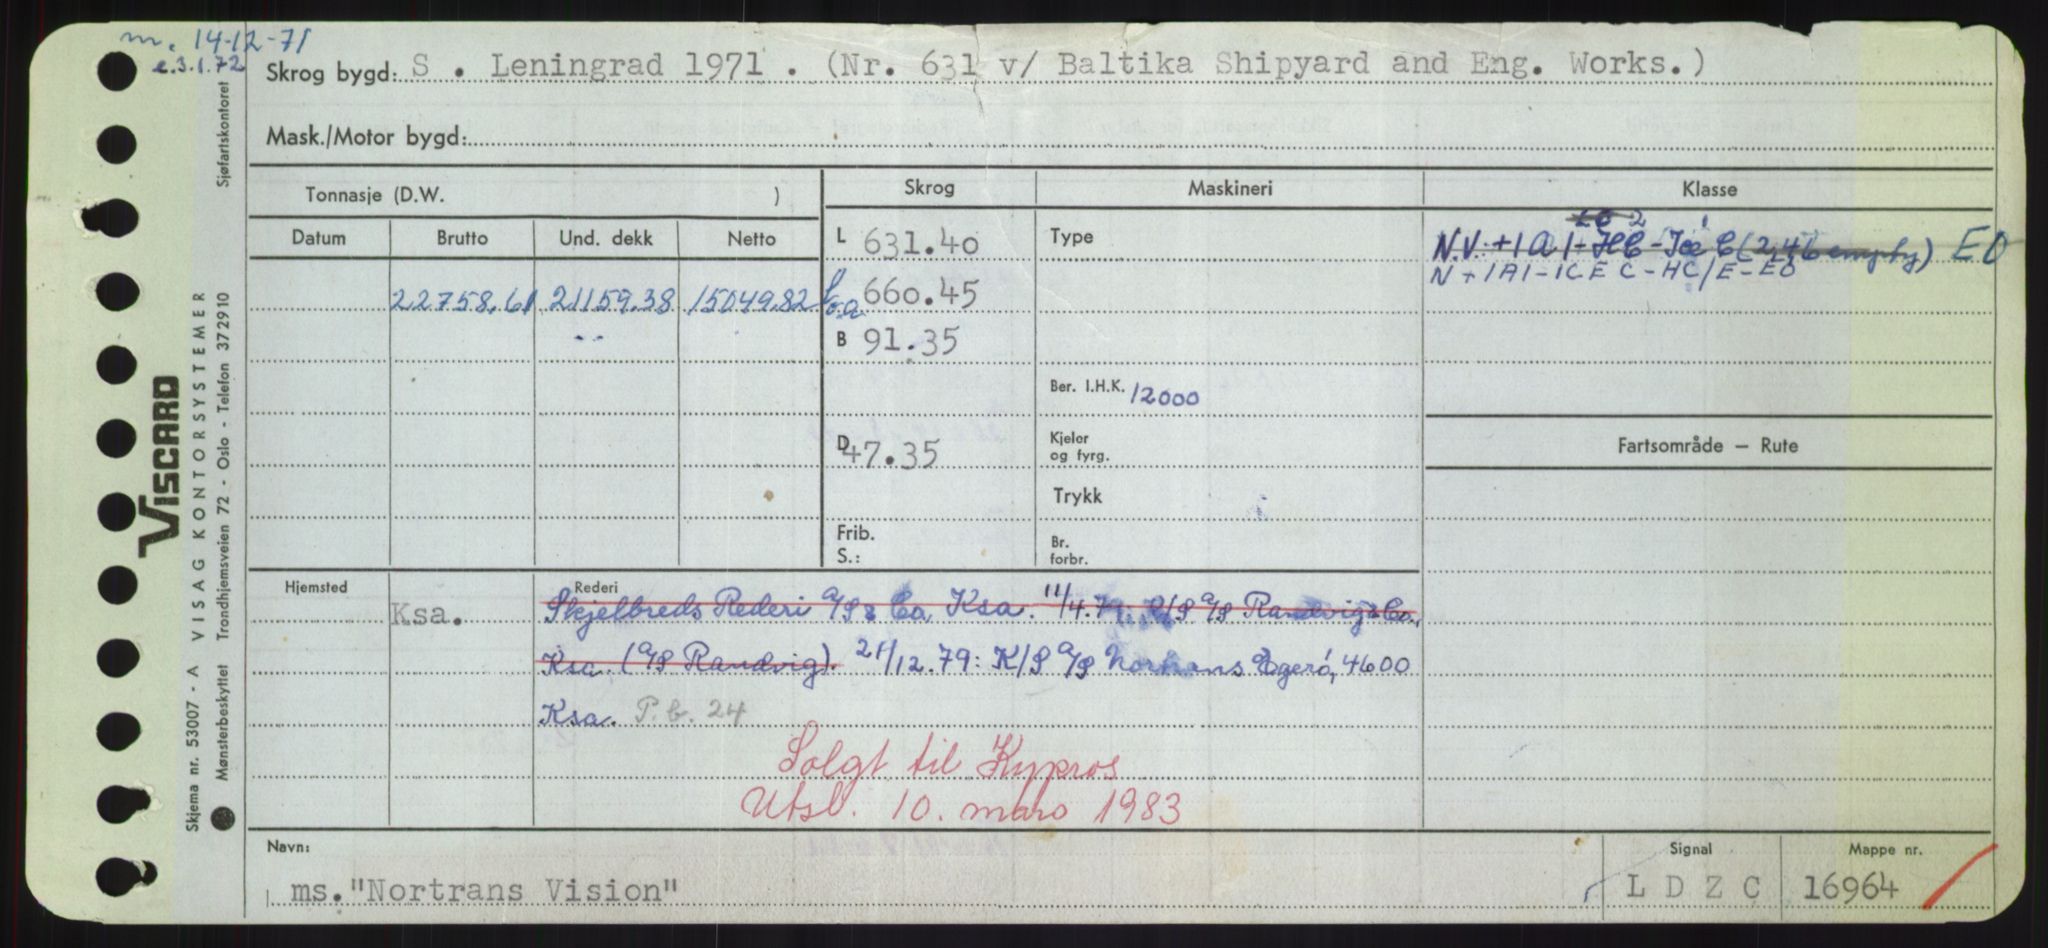 m. 14-12-71
e.3.1.72
Skrog bygd: S . Leningrad 1971 . (Nr. 631 v/ Baltika Shipyard and Eng. Works.)
Mask./Motor bygd:
Tonnasje (D.W. )
Skrog
Maskineri
Klasse
Datum
Brutto
Und. dekk
Netto
L 631.40
Type
N.V. +1A1-HC-Ice C (2,46 empty) EO
N +1A1-ICE C-HC/E-EO
22758.61 21159.38 15049.82
L o.a. 660.45
B 91.35
Ber. I.H.K. 12000
D 47.35
Kjeler
og fyrg.
Fartsområde — Rute
Trykk
Frib.
S.:
Br.
forbr.
Hjemsted
Ksa.
Rederi
Skjelbreds Rederi A/S & Co, Ksa. 11/4.79: K/S A/S Randvig & Co.,
Ksa. (A/S Randvig). 21/12.79: K/S A/S Nortrans Egerö, 4600
Ksa. P.b. 24
Solgt til Kypros
Utsl. 10. mars 1983
Navn:
ms."Nortrans Vision"
Signal
L D Z C
Mappe nr.
16964
VISCARD
Skjema nr. 53007 - A VISAG KONTORSYSTEMER
Mønsterbeskyttet Trondhjemsveien 72 - Oslo - Telefon 372910
Sjøfartskontoret